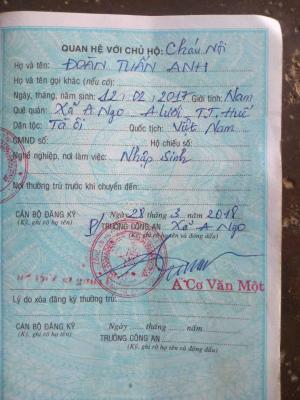 QUAN HỆ VỚI CHỦ HỘ: Cháu Nội
Họ và tên: ĐOÀN TUẤN ANH
Họ và tên gọi khác (nếu có):
Ngày, tháng, năm sinh: 12/02/2017 Giới tính: Nam
Quê quán: Xã A Ngo A Lưới T.T. Huế
Dân tộc: Tà ôi Quốc tịch: Việt Nam
CMND số: Hộ chiếu số:
Nghề nghiệp, nơi làm việc: Nhập Sinh
Nơi thường trú trước khi chuyển đến:
CÁN BỘ ĐĂNG KÝ Ngày 28 tháng 3 năm 2018
(Ký, ghi rõ họ tên) TRƯỞNG CÔNG AN Xã A Ngo
(Ký, ghi rõ họ tên và đóng dấu)
A Cơ Văn Một
Lý do xóa đăng ký thường trú:
Ngày ...... tháng ...... năm
CÁN BỘ ĐĂNG KÝ TRƯỞNG CÔNG AN
(Ký, ghi rõ họ tên) (Ký, ghi rõ họ tên và đóng dấu)